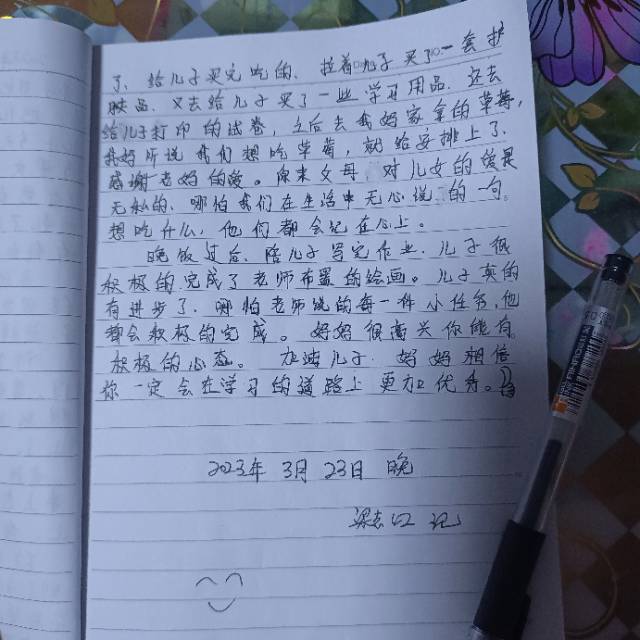 了，给儿子买完吃的，拉着儿子买了一套护
肤品，又去给儿子买了一些学习用品，还去
给儿子打印的试卷，之后去我妈家拿的草莓，
我妈听说我们想吃草莓，就给安排上了，
感谢老妈的爱。原来父母对儿女的爱是
无私的，哪怕我们在生活中无心说的一句
想吃什么，他们都会记在心上。
晚饭过后，陪儿子写完作业，儿子很
积极的完成了老师布置的绘画。儿子真的
有进步了，哪怕老师说的每一件小任务，他
都会积极的完成。妈妈很高兴你能有
积极的心态。加油儿子，妈妈相信
你一定会在学习的道路上更加优秀。
2023年3月23日 晚
梁志红 记